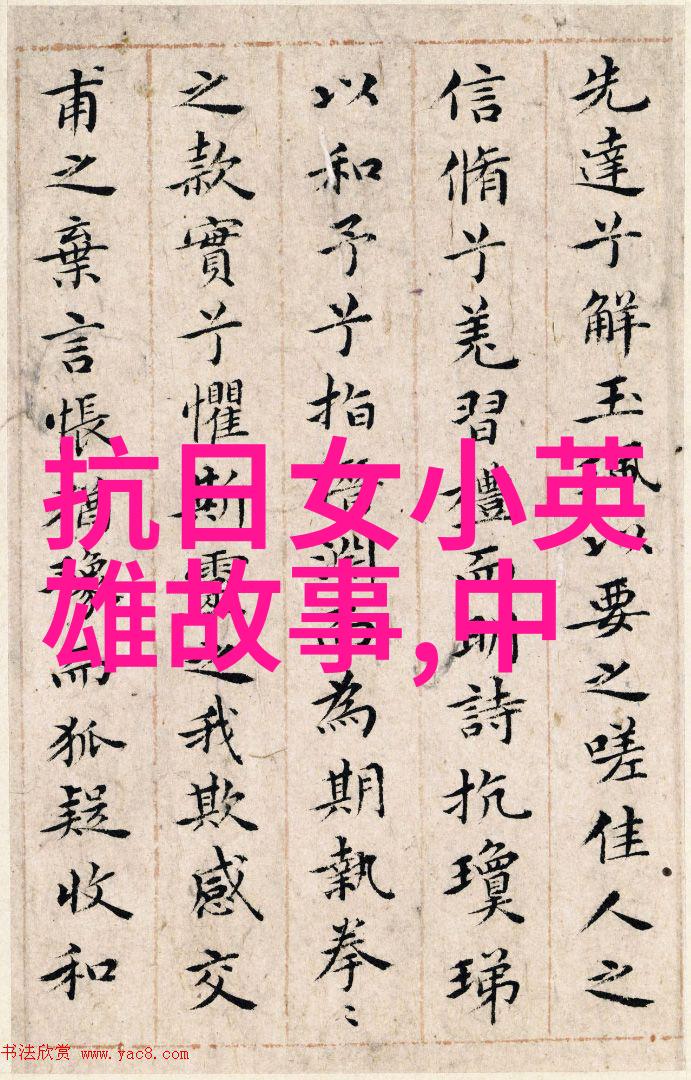 先達兮解玉珮以要之嗟佳人之
信脩兮羌習禮而明詩抗瓊珶
以和予兮指潛淵而為期執拳〻
之款實兮懼斯靈之我欺感交
甫之棄言悵猶豫而狐疑收和
抗日女小英
雄故事,中
书法欣赏 www.yac8.com